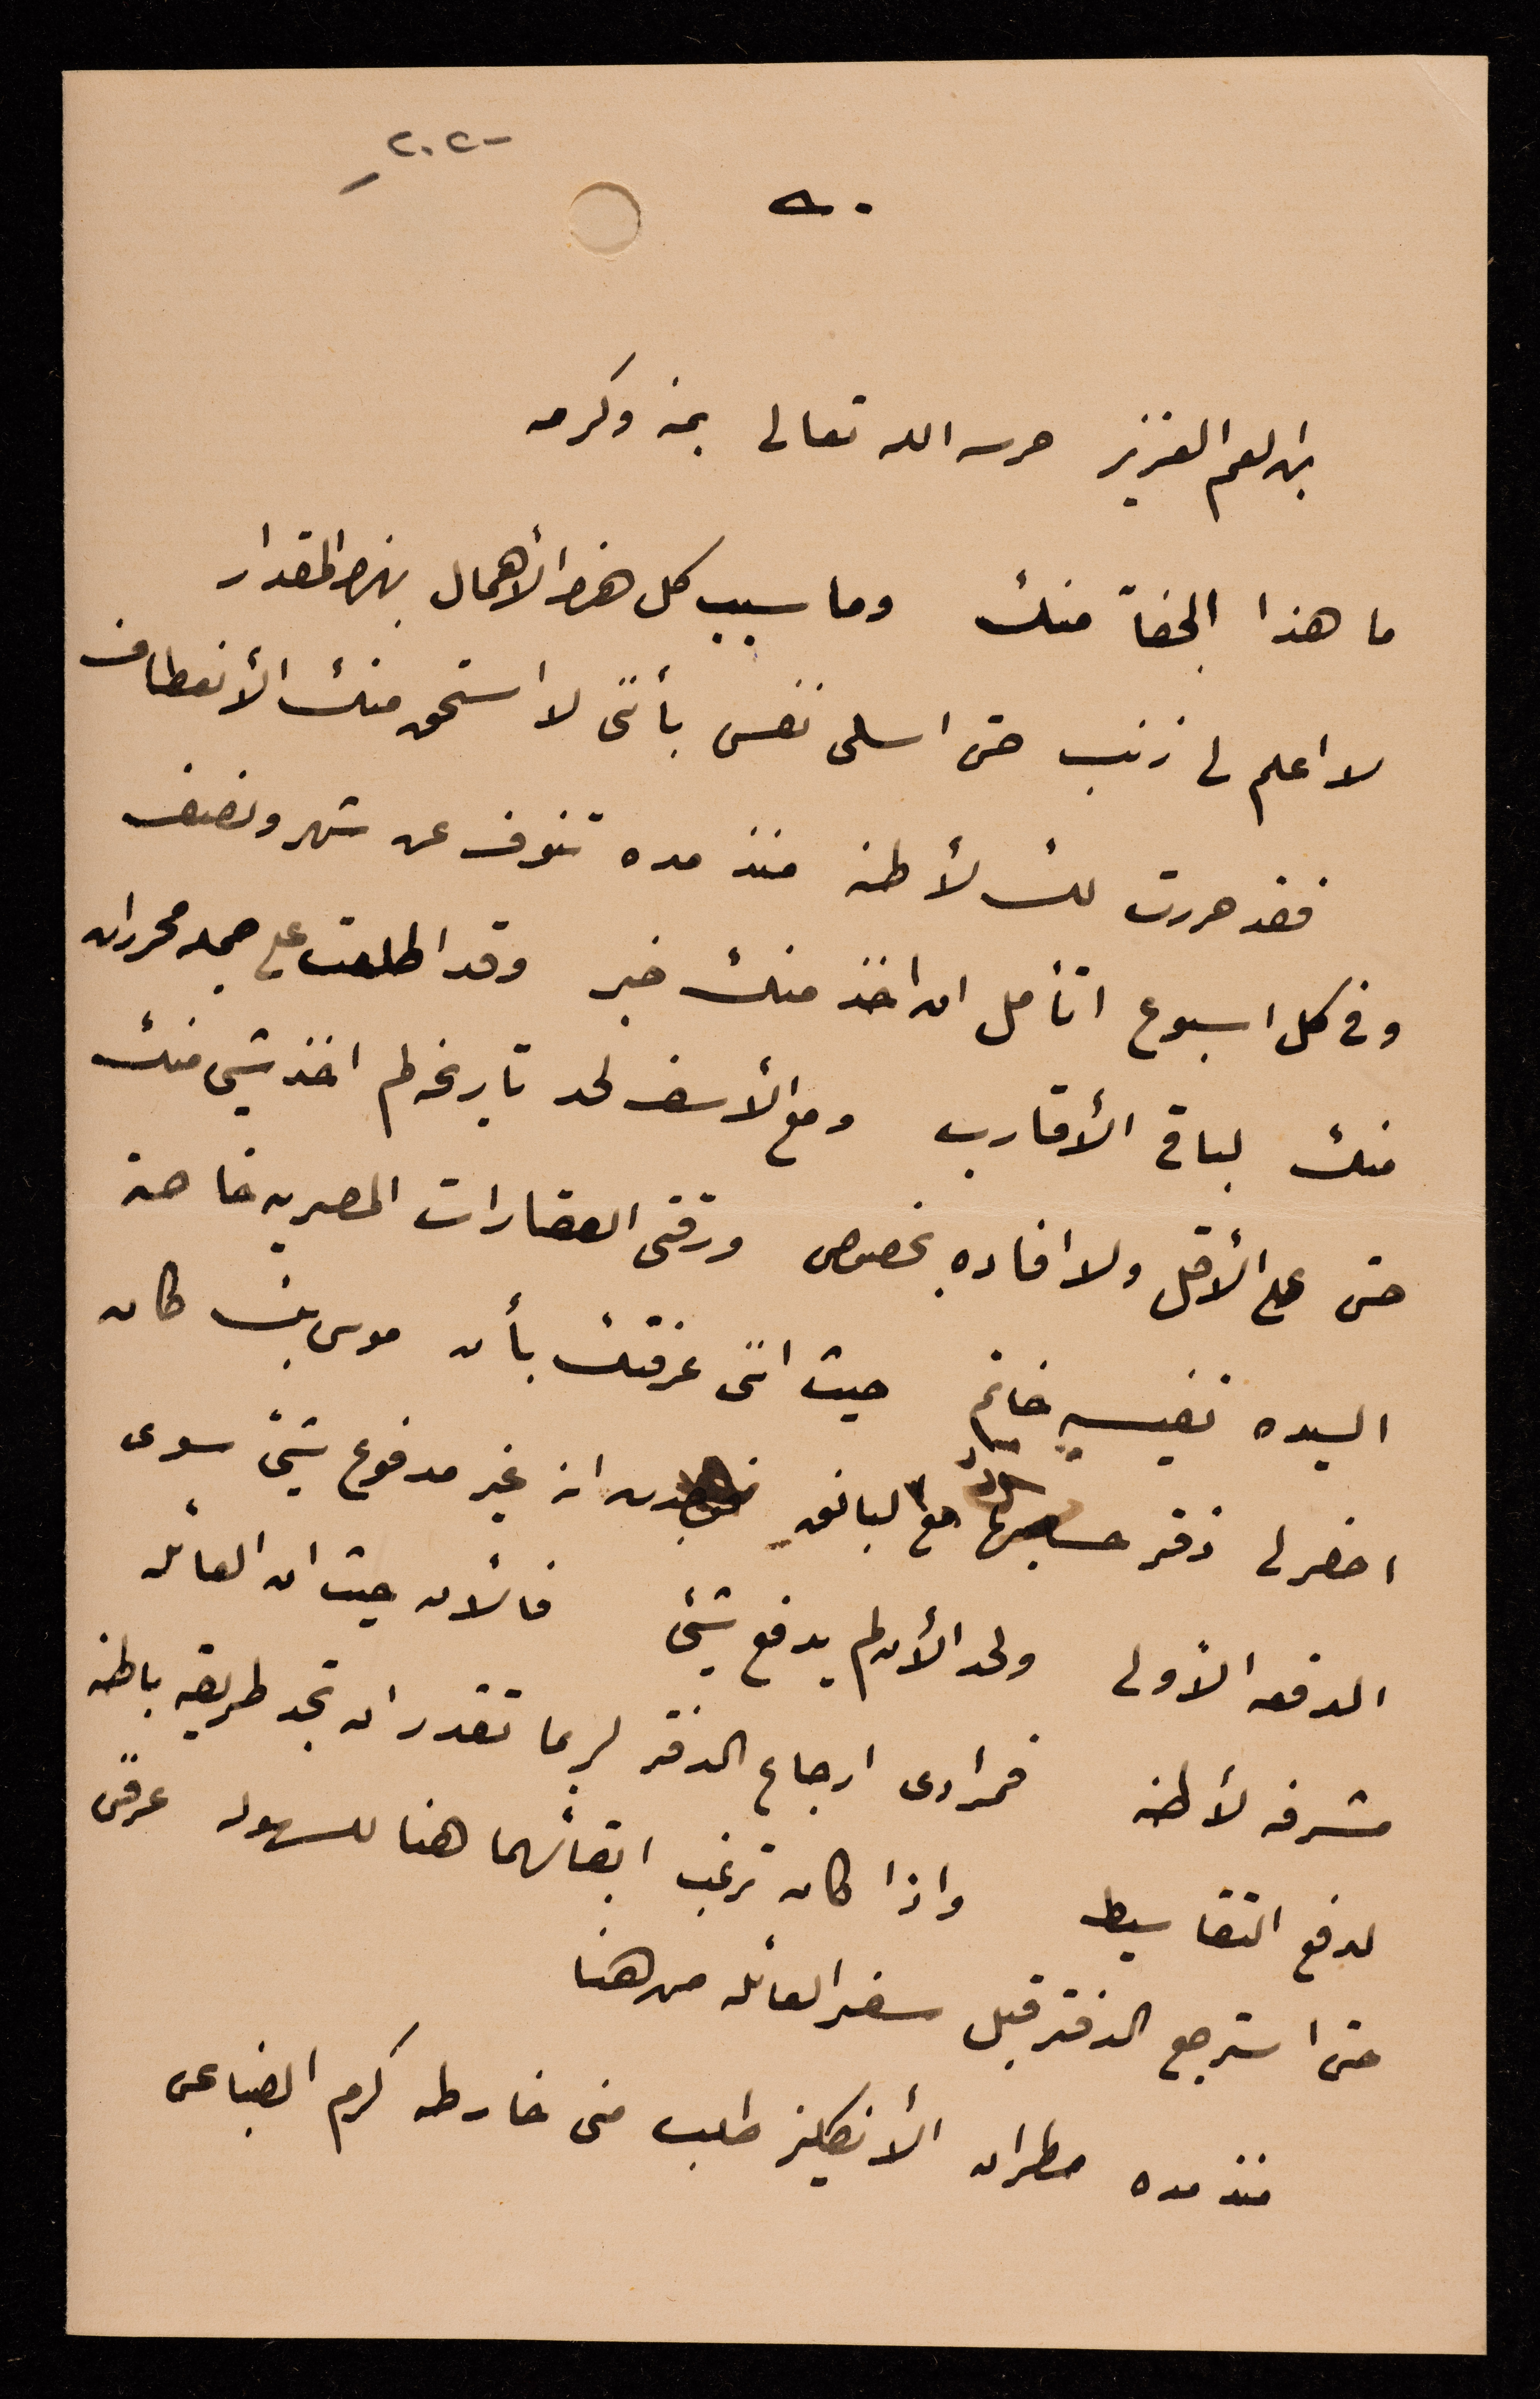 ٢٠٢
ابن العم العزيز حرسه الله تعالى بمنه وكرمه
ما هذا الجفآ منك وما سبب كل هذا الأهمال بهذا المقدار
لا اعلم لى ذنب حتى اسلى نفسى بأننى لا استحق منك الأنعطاف
فقد حررت لك لأطنه منذ مده تنوف عن شهر ونصف
وفى كل اسبوع اتأمل ان اخذ منك خبر وقد اطلعت على جمله محررات
منك لباقى الأقارب ومع الأسف لحد تاريخه لم اخذ شيئ منك
حتى على الأقل ولا افاده بخصوص ورقتى العقارات المصريه خاصة
السيده نفيسه خانم حيث اننى عرفتك بأن موسى بك كان
احضر لى دفتر مع البانق انه غير مدفوع شيئ سوى
الدفعه الأولى ولحد الأن لم يدفع شيئ فالأن حيث ان العائله
مشرفه لأطنه فمرادى ارجاع الدفتر لربما تقدر ان تجد طريقه باطنه
لدفع التقاسيط واذا كان ترغب ابقائهما هنا للسهوله عرفنى
حتى استرجع الدفتر قبل سفر العائله من هنا
منذ مده مطران الأنكليز طلب منى خارطه كرم الضباعى